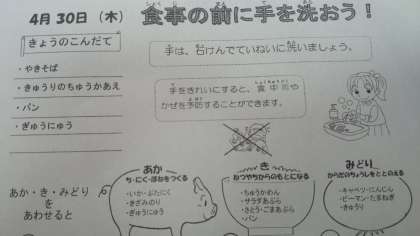 4月 30日 (木)
食事の前に手を洗おう！
きょうのこんだて
・やきそば
・きゅうりのちゅうかあえ
・パン
・ぎゅうにゅう
手は、石けんでていねいに洗いましょう。
手をきれいにすると、食中毒や
かぜを予防することができます。
あか
ち・にく・ほねをつくる
・いか・ぶたにく
・きざみのり
・ぎゅうにゅう
き
ねつやちからのもとになる
・ちゅうかめん
・サラダあぶら
・さとう・ごまあぶら
・パン
みどり
からだのちょうしをととのえる
・キャベツ・にんじん
・ピーマン・たまねぎ
・きゅうり
あか・き・みどり
を
あわせると